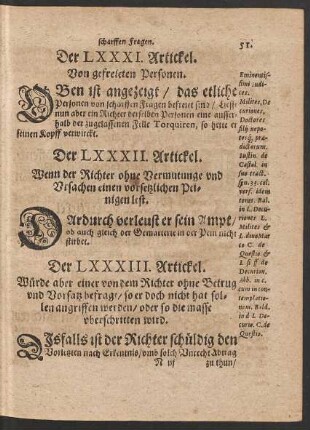 scharffen Fragen. 51.
Der LXXXI. Artickel.
Von gefreieten Personen.
OBen ist angezeigt / das etliche
Personen von scharffen Fragen befreiet sind / Liesse
nun aber ein Richter derselben Personen eine ausser-
halb der zugelassenen Felle Torquiren / so hette er
seinen Kopff verwirckt.
Der LXXXII. Artickel.
Wenn der Richter ohne Vermutunge vnd
Vrsachen einen vorsetzlichen Pei-
nigen lest.
DArdurch verleust er sein Ampt /
ob auch gleich der Gemarterte in der Pein nicht
stirbet.
Der LXXXIII. Artickel.
Würde aber einer von dem Richter ohne Betrug
vnd Vorsatz befragt / so er doch nicht hat sol-
len angriffen werden / oder so die masse
vberschritten wird.
DIsfalls ist der Richter schüldig den
Vorletzten nach Erkentnis / vmb solch Vnrecht Abtrag
N iij zu thun /
Milites, De
curiones,
Doctores
prae-
dictorum.
de
Castol. in
suo tract.
l. in C. Decu-
rionib. L.
Milites &
C. de
Quaestio. &
L. si ff. de
Decurion.
in l.
C. de
Quaestio.